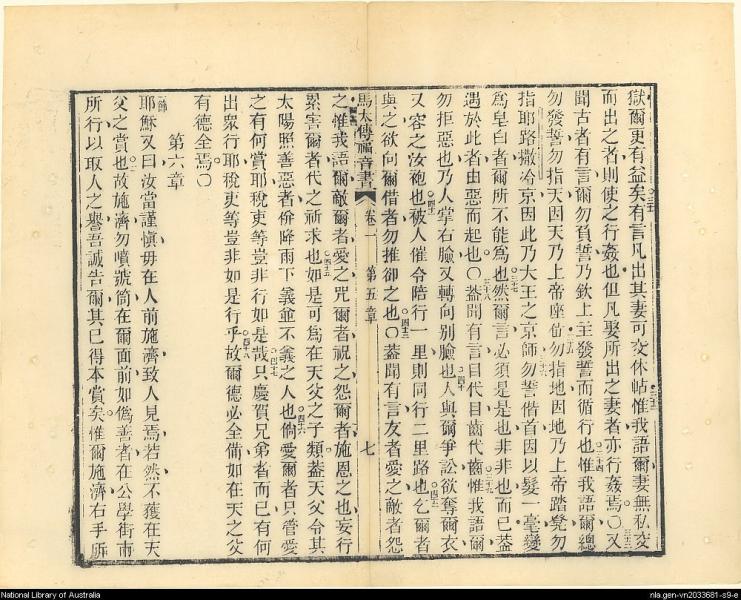 獄爾更有益矣有言凡出其妻可交休帖惟我語爾妻無私交
而出之者則使之行姦也但凡娶所出之妻者亦行姦焉〇又
聞古者有言爾勿負誓乃欽上主發誓而循行也惟我語爾總
勿發誓勿指天因天乃上帝座位勿指地因地乃上帝踏凳勿
指耶路撒冷京因此乃大王之京師勿誓借首因以髮一毫變
為皂白者爾所不能為也然爾言必須是是也非非也而已蓋
過於此者由惡而起也〇蓋聞有言目代目齒代齒惟我語爾
勿拒惡也乃人掌右臉又轉向別臉也人與爾爭訟欲奪爾衣
又容之汝袍也被人催令陪行一里則同行二里路也乞爾者
與之欲向爾借者勿推卻之也〇蓋聞有言友者愛之敵者怨
馬太傳福音書 卷一 第五章 七
之惟我語爾敵爾者愛之咒爾者祝之怨爾者施恩之也妄行
累害爾者代之祈求也如是可為在天父之子類蓋天父令其
太陽照善惡者併降雨下義並不義之人也倘愛爾者只管愛
之有何賞耶稅吏等豈非行如是哉只慶賀兄弟者而已有何
出眾行耶稅吏等豈非如是行乎故爾德必全備如在天之父
有德全焉〇
第六章
一節 耶穌又曰汝當謹慎毋在人前施濟致人見焉若然不獲在天
父之賞也故施濟勿嘖號筒在爾面前如偽善者在公學街市
所行以取人之譽吾誠告爾其已得本賞矣惟爾施濟右手所
National Library of Australia
nla.gen-vn2033681-s9-e